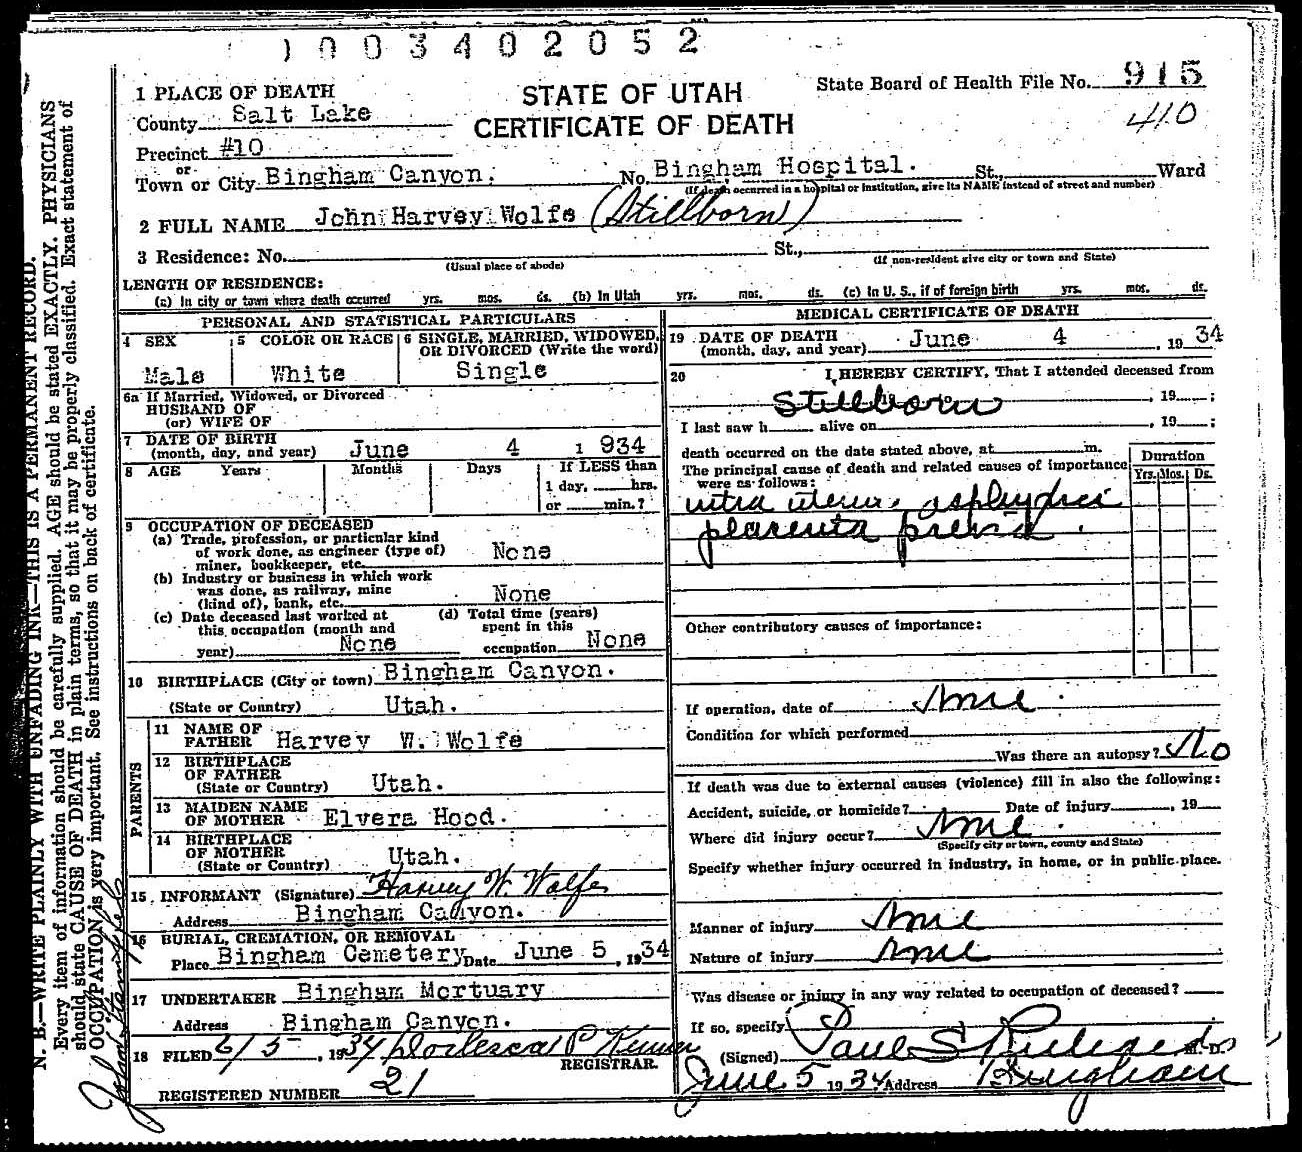 1003402052
STATE OF UTAH
CERTIFICATE OF DEATH
State Board of Health File No. 915
410
1 PLACE OF DEATH
County Salt Lake
Precinct #10
or
Town or City Bingham Canyon. No. Bingham Hospital. St., Ward
(If death occurred in a hospital or institution, give its NAME instead of street and number)
2 FULL NAME John Harvey Wolfe (Stillborn)
3 Residence: No. St.,
(Usual place of abode) (If non-resident give city or town and State)
LENGTH OF RESIDENCE:
(a) In city or town where death occurred yrs. mos. ds. (b) In Utah yrs. mos. ds. (c) In U. S., if of foreign birth yrs. mos. ds.
PERSONAL AND STATISTICAL PARTICULARS
4 SEX 5 COLOR OR RACE 6 SINGLE, MARRIED, WIDOWED, OR DIVORCED (Write the word)
Male White Single
6a If Married, Widowed, or Divorced
HUSBAND OF
(or) WIFE OF
7 DATE OF BIRTH
(month, day, and year) June 4 1 934
8 AGE Years Months Days If LESS than
1 day, hrs.
or min.?
9 OCCUPATION OF DECEASED
(a) Trade, profession, or particular kind
of work done, as engineer (type of)
miner, bookkeeper, etc. None
(b) Industry or business in which work
was done, as railway, mine
(kind of), bank, etc. None
(c) Date deceased last worked at
this occupation (month and
year) None
(d) Total time (years)
spent in this
occupation None
10 BIRTHPLACE (City or town) Bingham Canyon.
(State or Country) Utah.
PARENTS
11 NAME OF
FATHER Harvey W. Wolfe
12 BIRTHPLACE
OF FATHER
(State or Country) Utah.
13 MAIDEN NAME
OF MOTHER Elvera Hood.
14 BIRTHPLACE
OF MOTHER
(State or Country) Utah.
15 INFORMANT (Signature) Harvey W. Wolfe
Address Bingham Canyon.
16 BURIAL, CREMATION, OR REMOVAL
Place Bingham Cemetery Date June 5, 1934
17 UNDERTAKER Bingham Mortuary
Address Bingham Canyon.
18 FILED 6/5, 1934 P
REGISTRAR.
REGISTERED NUMBER 21
MEDICAL CERTIFICATE OF DEATH
19 DATE OF DEATH
(month, day, and year) June 4, 1934
20 I HEREBY CERTIFY, That I attended deceased from
Stillborn, 19 ;
I last saw h alive on , 19 ;
death occurred on the date stated above, at m.
The principal cause of death and related causes of importance
were as follows:
Duration
Yrs. Mos. Ds.
intra uterine asphyxia
placenta previa.
Other contributory causes of importance:
If operation, date of None.
Condition for which performed
Was there an autopsy? No
If death was due to external causes (violence) fill in also the following:
Accident, suicide, or homicide? Date of injury , 19
Where did injury occur? None.
(Specify city or town, county and State)
Specify whether injury occurred in industry, in home, or in public place.
Manner of injury None
Nature of injury None
Was disease or injury in any way related to occupation of deceased?
If so, specify
(Signed) Paul S Richards M. D.
June 5 1934 Address Bingham
N. B.—WRITE PLAINLY WITH UNFADING INK—THIS IS A PERMANENT RECORD.
Every item of information should be carefully supplied. AGE should be stated EXACTLY. PHYSICIANS
should state CAUSE OF DEATH in plain terms, so that it may be properly classified. Exact statement of
OCCUPATION is very important. See instructions on back of certificate.
John